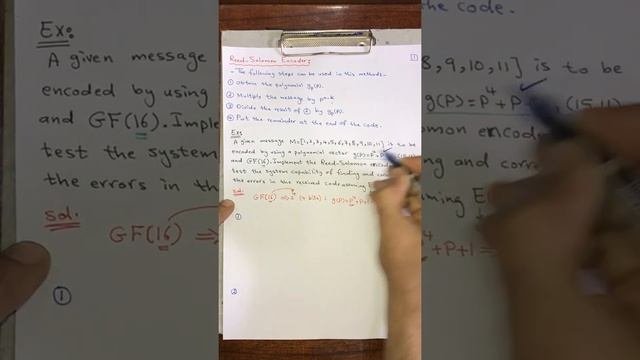 Reed-Solomon Encoder:
1
- The following steps can be used in this method:-
① Obtain the polynomial gp(P).
② Multiply the message by p^n-k.
③ Divide the result of ② by gp(P).
④ Put the remainder at the end of the code.
Ex:
A given message M=[1,2,3,4,5,6,7,8,9,10,11] is to be
encoded by using a polynomial vector g(P)=P^4+P
and GF(16). Implement the Reed-Solomon
test the system capability of finding and
the errors in the received code assuming
sol.
GF(16) ⇒ 2^4 (4 bits) : g(P)=P^4+P+1
①
②
Ex:
A given message
encoded by using
and GF(16). Implem
test the system
the errors in
sol.
GF(16) ⇒
①
the code.
8,9,10,11] is to be
g(P)=P^4+P , (15,11)
and
ming
+P+1